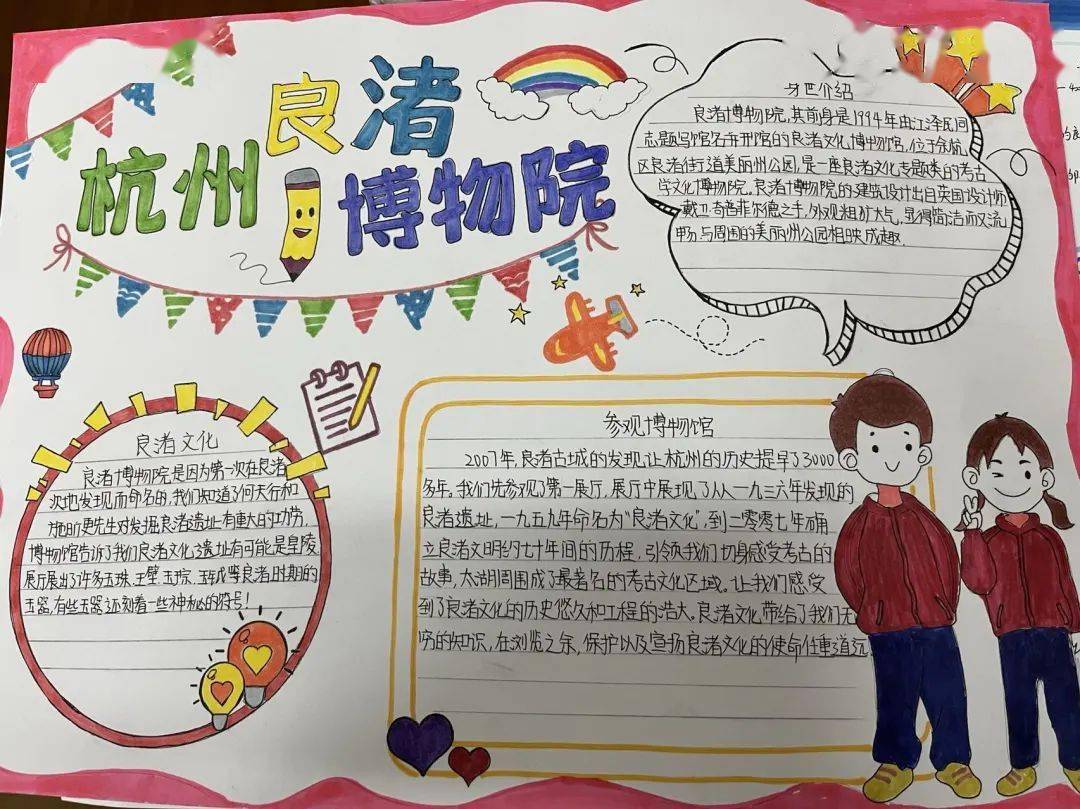 良渚
杭州
博物院
介绍
良渚博物院,其前身是1994年由江泽民同
志题写馆名并开馆的良渚文化博物馆,位于余杭
区良渚街道美丽州公园,是一座良渚文化专题类的考古
学文化博物院。良渚博物院的建筑设计出自英国设计师
戴卫·奇普菲尔德之手,外观粗犷大气,显得简洁而又流
畅,与周围的美丽州公园相映成趣。
良渚文化
良渚博物院是因为第一次在良渚
次地发现而命名的,我们知道了何天行和
施昕更先生对发掘良渚遗址有重大的功劳。
博物馆告诉了我们良渚文化了遗址有可能是皇陵
展厅展出了许多玉珠、王璧、玉琮、玉钺等良渚时期的
玉器,有些玉器还刻着一些神秘的符号!
参观博物馆
2007年,良渚古城的发现让杭州的历史提早了3000
多年。我们先参观了第一展厅,展厅中展现了从一九三六年发现的
良渚遗址,一九五九年命名为“良渚文化”,到二零零七年确
立良渚文明约七十年间的历程,引领我们切身感受考古的
故事,太湖周围成了最著名的考古文化区域。让我们感受
到了良渚文化的历史悠久和工程的浩大。良渚文化带给了我们无
穷的知识,在浏览之余,保护以及宣扬良渚文化的使命任重道远